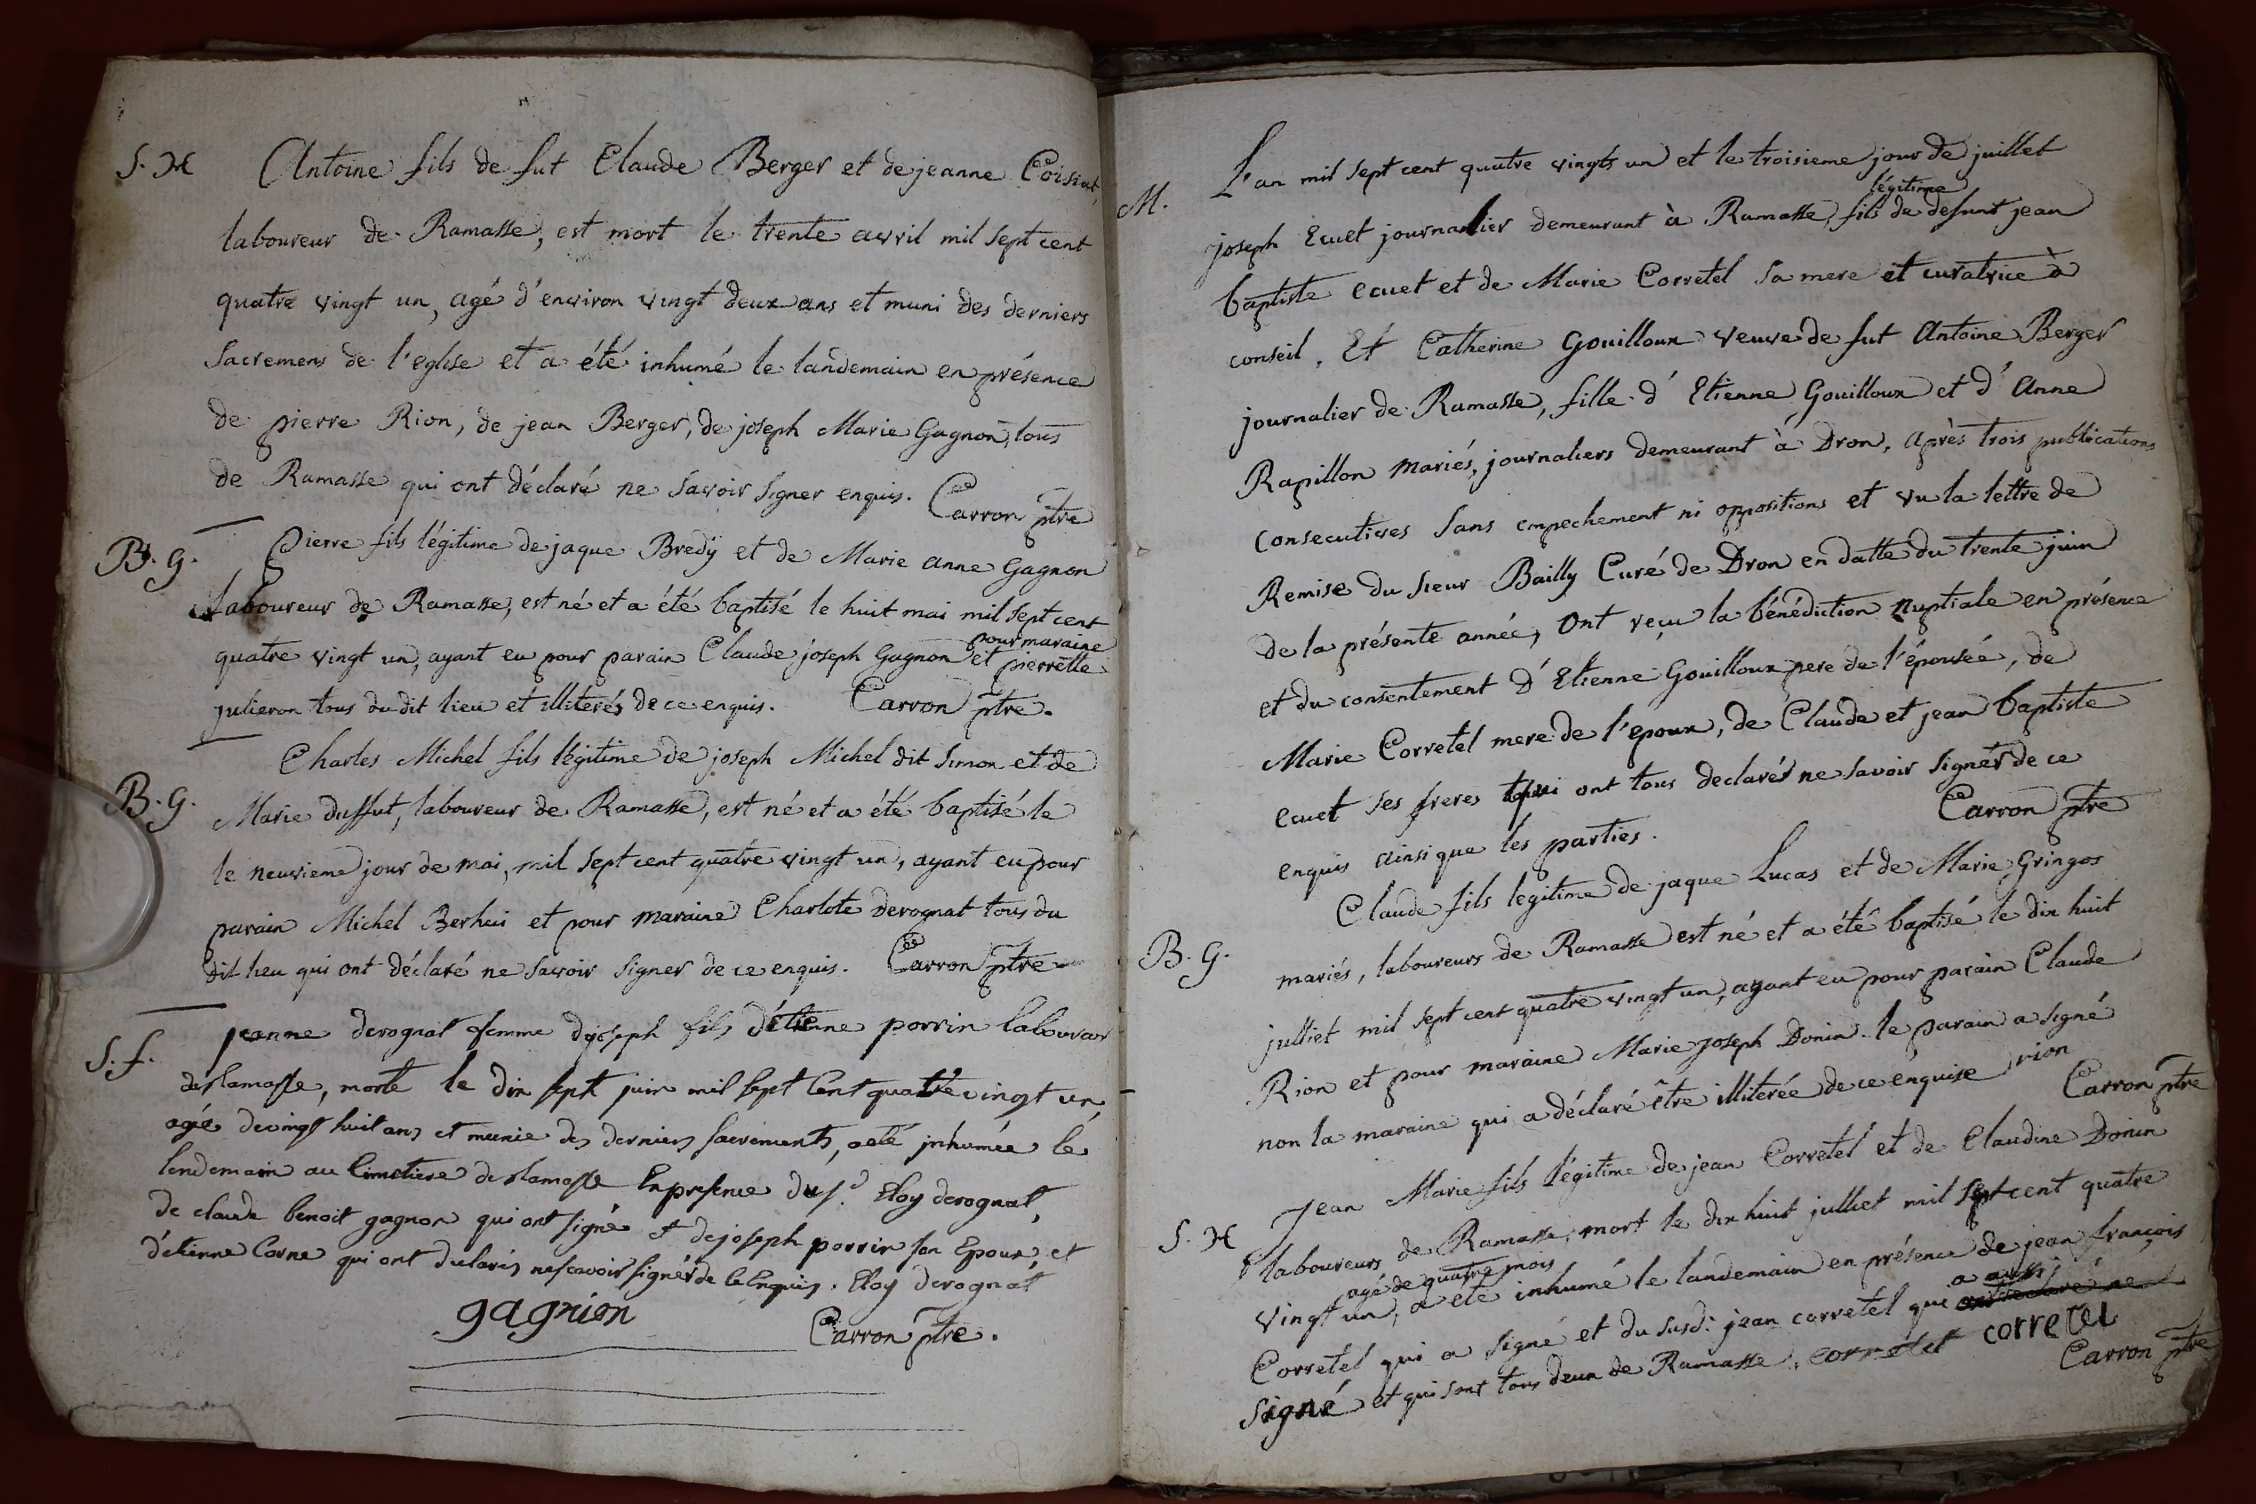 S. H Antoine fils de fut Claude Berger et de jeanne Coisiat,
laboureur de Ramasse, est mort le trente avril mil sept cent
quatre vingt un, agé d'environ vingt deux ans et muni des derniers
Sacremens de l'eglise et a été inhumé le landemain en présence
de pierre Rion, de jean Berger, de joseph Marie Gagnon, tous
de Ramasse qui ont déclaré ne savoir signer enquis. Carron ptre
B. g. Pierre fils légitime de jaque Bredÿ et de Marie anne Gagnon
Laboureur de Ramasse, est né et a été baptisé le huit mai mil sept cent
quatre vingt un, ayant eu pour parain Claude joseph Gagnon et pour maraine pierrette
julieron tous du dit lieu et illiterés de ce enquis. Carron ptre.
Charles Michel fils légitime de joseph Michel dit Simon et de
B. G. Marie duffut, laboureur de Ramasse, est né et a été baptisé le
le neuvieme jour de mai, mil sept cent quatre vingt un, ayant eu pour
parain Michel Berhui et pour maraine Charlote derognat tous du
dit lieu qui ont déclaré ne savoir signer de ce enquis. Carron ptre
S. f. jeanne derognat femme de joseph fils d'étienne porrin laboureur
de Ramasse, morte le dix sept juin mil sept Cent quatre vingt un,
agée de vingt huit ans et munie des derniers sacrements, a eté inhumée le
lendemain au Cimetiere de Ramasse En presence du Sr. Eloy derognat,
de claude benoit gagnon qui ont signé et de joseph porrin son Epoux, et
d'étienne Carne qui ont declarés ne scavoir signér de ce Enquis. Eloy derognat
gagnion
Carron ptre.
L'an mil sept cent quatre vingts un et le troisieme jour de juillet
M. joseph Ecuet journalier demeurant à Ramasse, fils légitime de defunt jean
baptiste ecuet et de Marie Corretel sa mere et curatrice à
conseil, Et Catherine Gouilloux veuve de fut Antoine Berger
journalier de Ramasse, fille d'Etienne Gouilloux et d'Anne
Rapillon mariés, journaliers demeurant à Dron, après trois publications
consecutives sans empechement ni oppositions et vu la lettre de
Remise du sieur Bailly Curé de Dron en datte du trente juin
de la présente année, Ont reçu la bénédiction nuptiale en présence
et du consentement d'Etienne Gouilloux pere de l'épousée, de
Marie Corretel mere de l'epoux, de Claude et jean baptiste
ecuet ses freres qui ont tous declarés ne savoir signer de ce
enquis ainsi que les parties. Carron ptre
Claude fils legitime de jaque Lucas et de Marie Gringos
B. G. mariés, laboureurs de Ramasse est né et a été baptisé le dix huit
julliet mil sept cent quatre vingt un, ayant eu pour parain Claude
Rion et pour maraine Marie joseph Donin. le parain a signé
non la maraine qui a déclaré être illiterée de ce enquise rion
Carron ptre
Jean Marie fils légitime de jean Corretel et de Claudine Donin
S. H laboureurs de Ramasse, mort le dix huit julliet mil sept cent quatre
vingt un, agé de quatre mois a eté inhumé le landemain en présence de jean françois
Corretel qui a signé et du susd: jean corretel qui ont declaré ne a aussi
signé et qui sont tous deux de Ramasse. corretel corretel
Carron ptre